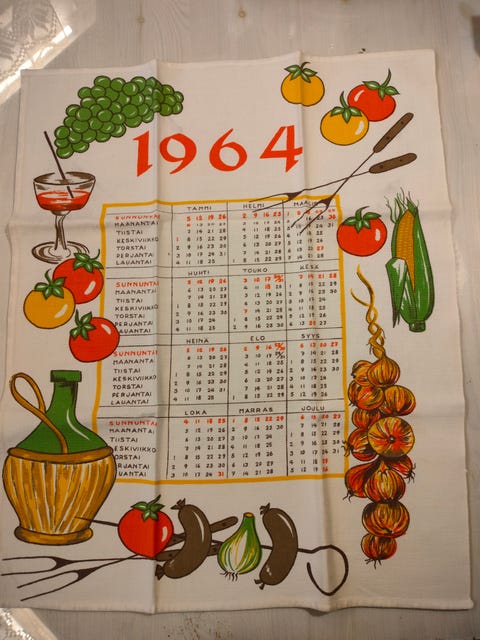 1964
TAMMI HELMI MAALIS
SUNNUNTAI 5 12 19 26 2 9 16 23
MAANANTAI 6 13 20 27 3 10 17 24
TIISTAI 7 14 21 28 4 11 18 25
KESKIVIIKKO 1 8 15 22 29 5 12 19 26 4 11 18 25
TORSTAI 2 9 16 23 30 6 13 20 27 5 12 19 26
PERJANTAI 3 10 17 24 31 7 14 21 28 6 13 20 27
LAUANTAI 4 11 18 25 1 8 15 22 29 7 14 21 28
HUHTI TOUKO KESÄ
SUNNUNTAI 5 12 19 26 3 10 17 24/31 7 14 21 28
MAANANTAI 6 13 20 27 4 11 18 25 1 8 15 22 29
TIISTAI 7 14 21 28 5 12 19 26 2 9 16 23 30
KESKIVIIKKO 1 8 15 22 29 6 13 20 27 3 10 17 24
TORSTAI 2 9 16 23 30 7 14 21 28 4 11 18 25
PERJANTAI 3 10 17 24 1 8 15 22 29 5 12 19 26
LAUANTAI 4 11 18 25 2 9 16 23 30 6 13 20 27
HEINÄ ELO SYYS
SUNNUNTAI 5 12 19 26 2 9 16 23/30 6 13 20 27
MAANANTAI 6 13 20 27 3 10 17 24/31 7 14 21 28
TIISTAI 7 14 21 28 4 11 18 25 1 8 15 22 29
KESKIVIIKKO 1 8 15 22 29 5 12 19 26 2 9 16 23 30
TORSTAI 2 9 16 23 30 6 13 20 27 3 10 17 24
PERJANTAI 3 10 17 24 31 7 14 21 28 4 11 18 25
LAUANTAI 4 11 18 25 1 8 15 22 29 5 12 19 26
LOKA MARRAS JOULU
SUNNUNTAI 4 11 18 25 1 8 15 22 29 6 13 20 27
MAANANTAI 5 12 19 26 2 9 16 23 30 7 14 21 28
TIISTAI 6 13 20 27 3 10 17 24 1 8 15 22 29
KESKIVIIKKO 7 14 21 28 4 11 18 25 2 9 16 23 30
TORSTAI 1 8 15 22 29 5 12 19 26 3 10 17 24 31
PERJANTAI 2 9 16 23 30 6 13 20 27 4 11 18 25
LAUANTAI 3 10 17 24 31 7 14 21 28 5 12 19 26